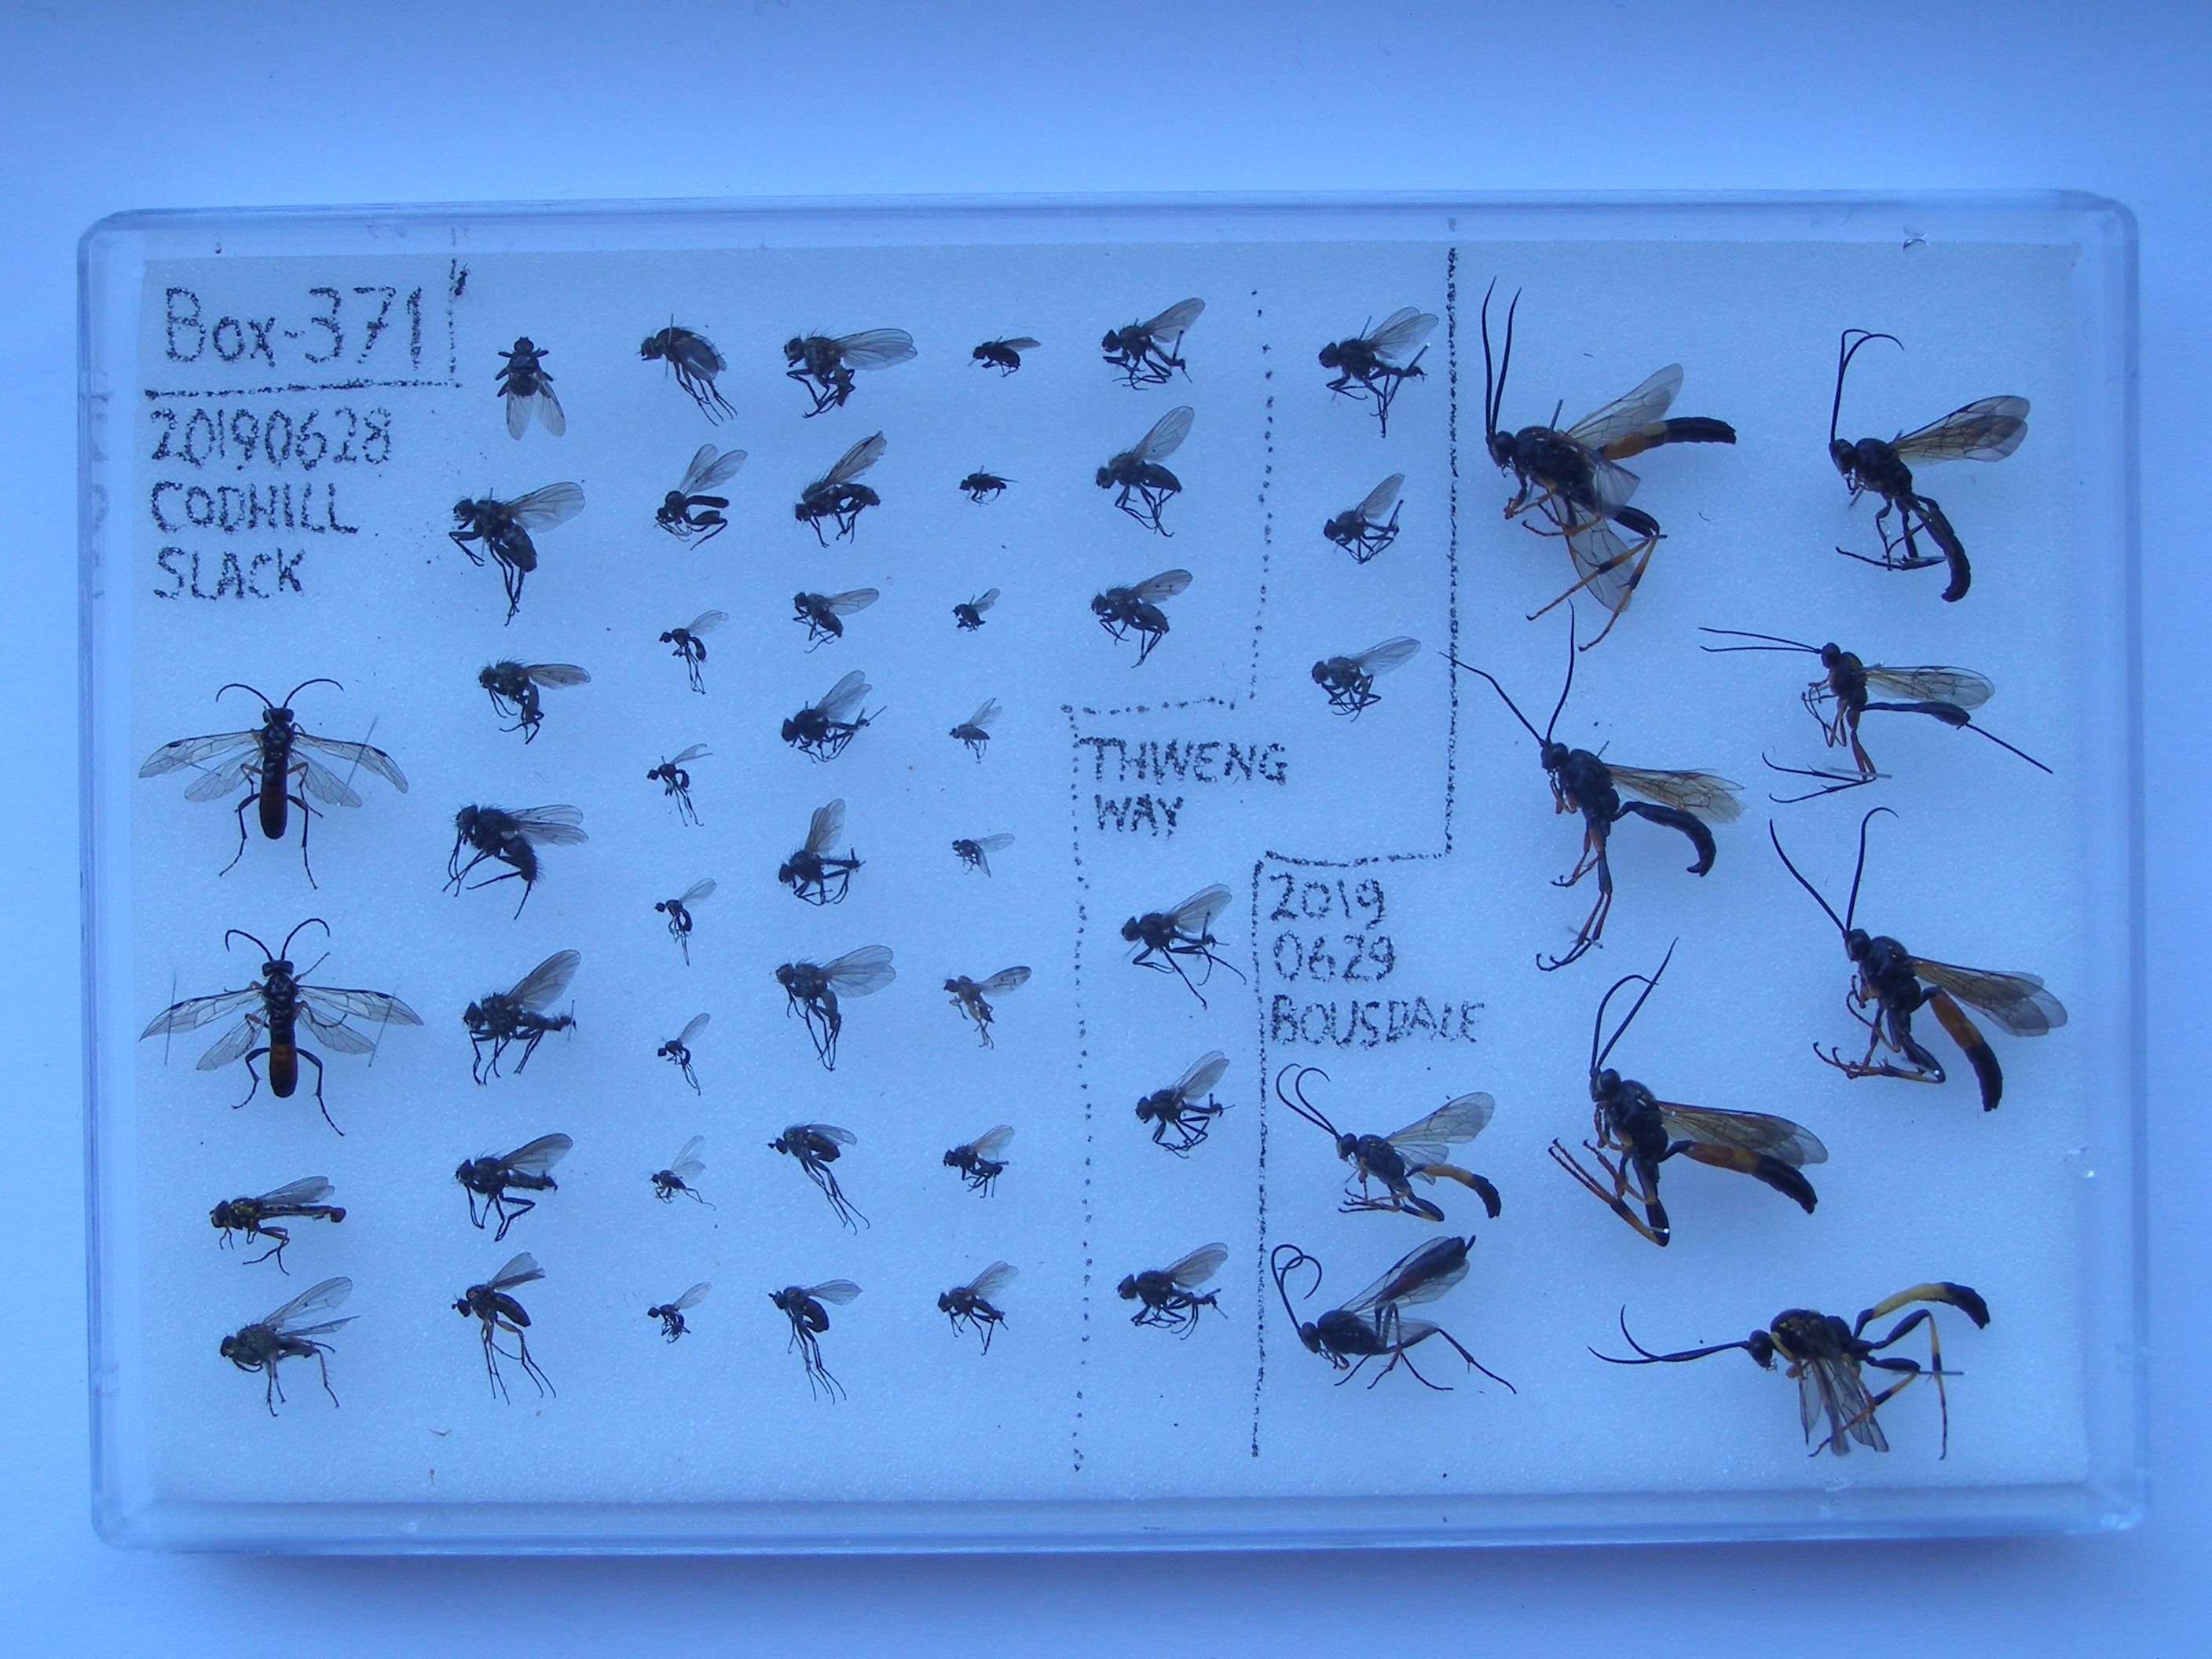 Box-371
20190628
CODHILL
SLACK
THWENG
WAY
2019
0629
BOUSDALE